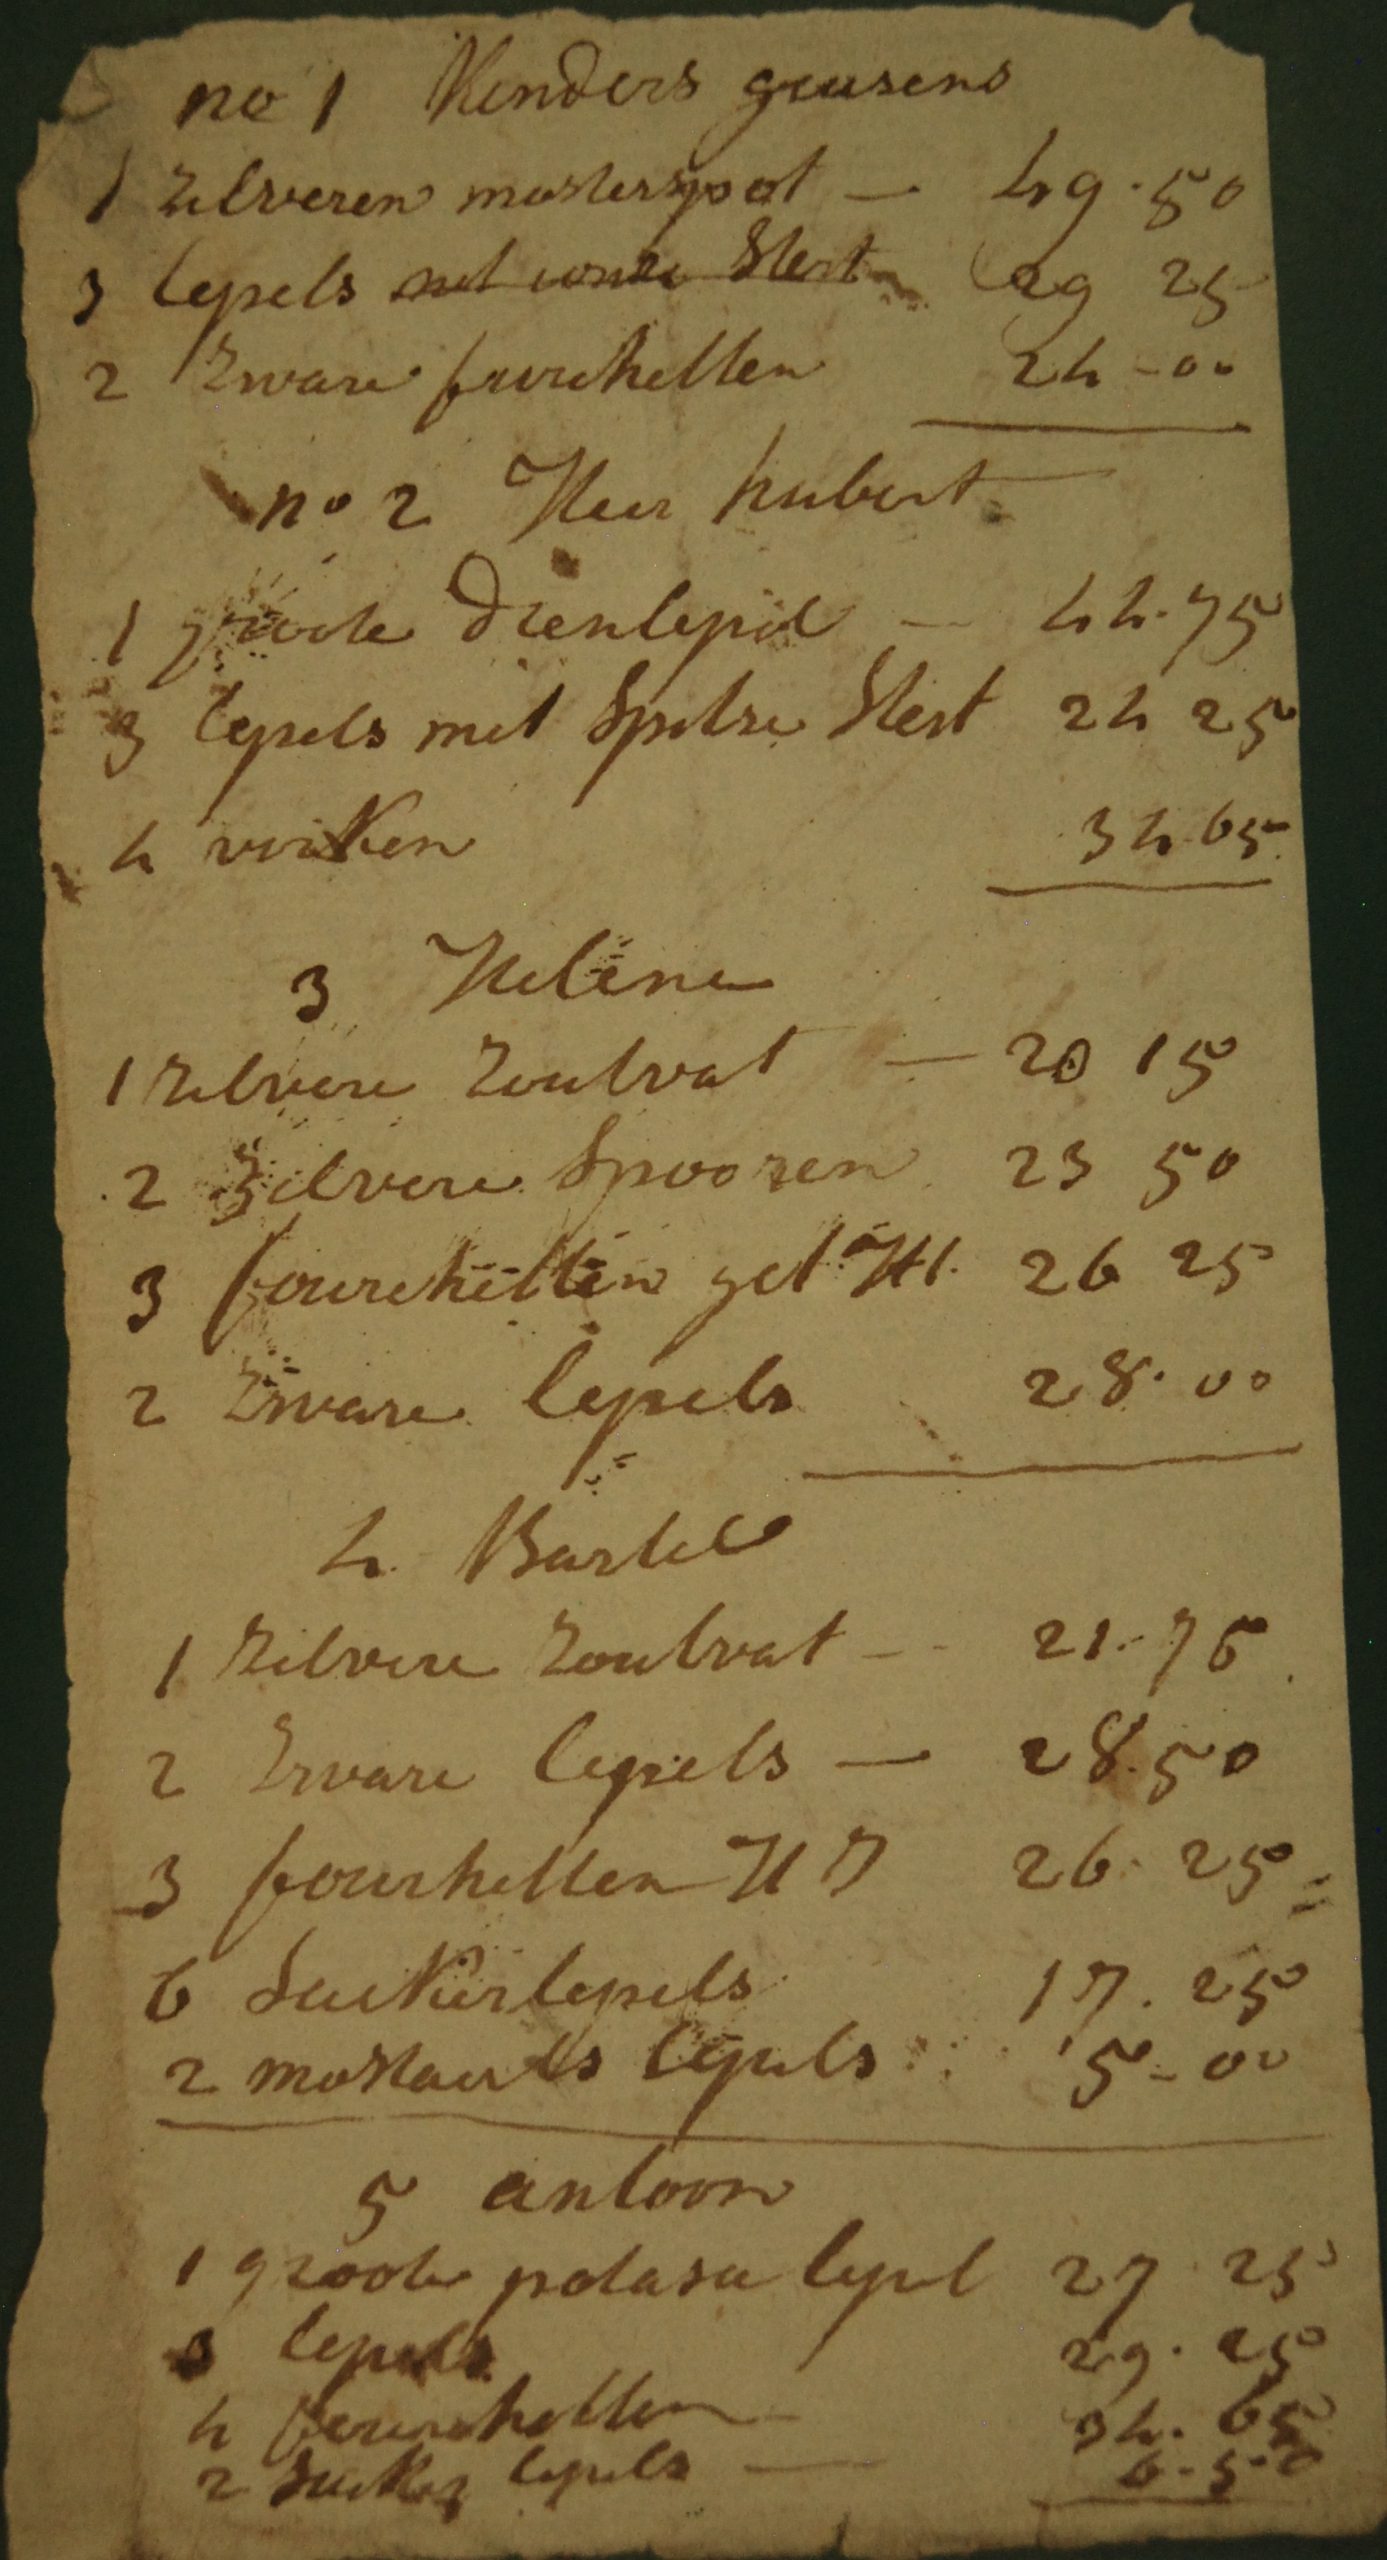 no 1 Kinders geusens
1 zilveren mosterspot — 49.50
3 lepels met 29 25
2 zware fourchetten 24-00
no 2 Heer hubert
1 groote Dienlepel — 44.75
3 lepels met Spitse Stert 24 25
4 virken 34.65
3 Helene
1 zilvere Zoutvat — 20 15
2 Zilvere Spooren 23 50
3 fourchetten get H I. 26 25
2 Zware lepels 28.00
4. Bartel
1 Zilvere Zoutvat — 21.75
2 Zware lepels — 28.50
3 fourhetten H I 26.25
6 Suikerlepels 17.25
2 mostaerts lepels 5-00
5 antoon
1 groote potasie lepel 27 25
3 lepels 29.25
4 fourchetten 34.65
2 Suiker lepels — 6-50